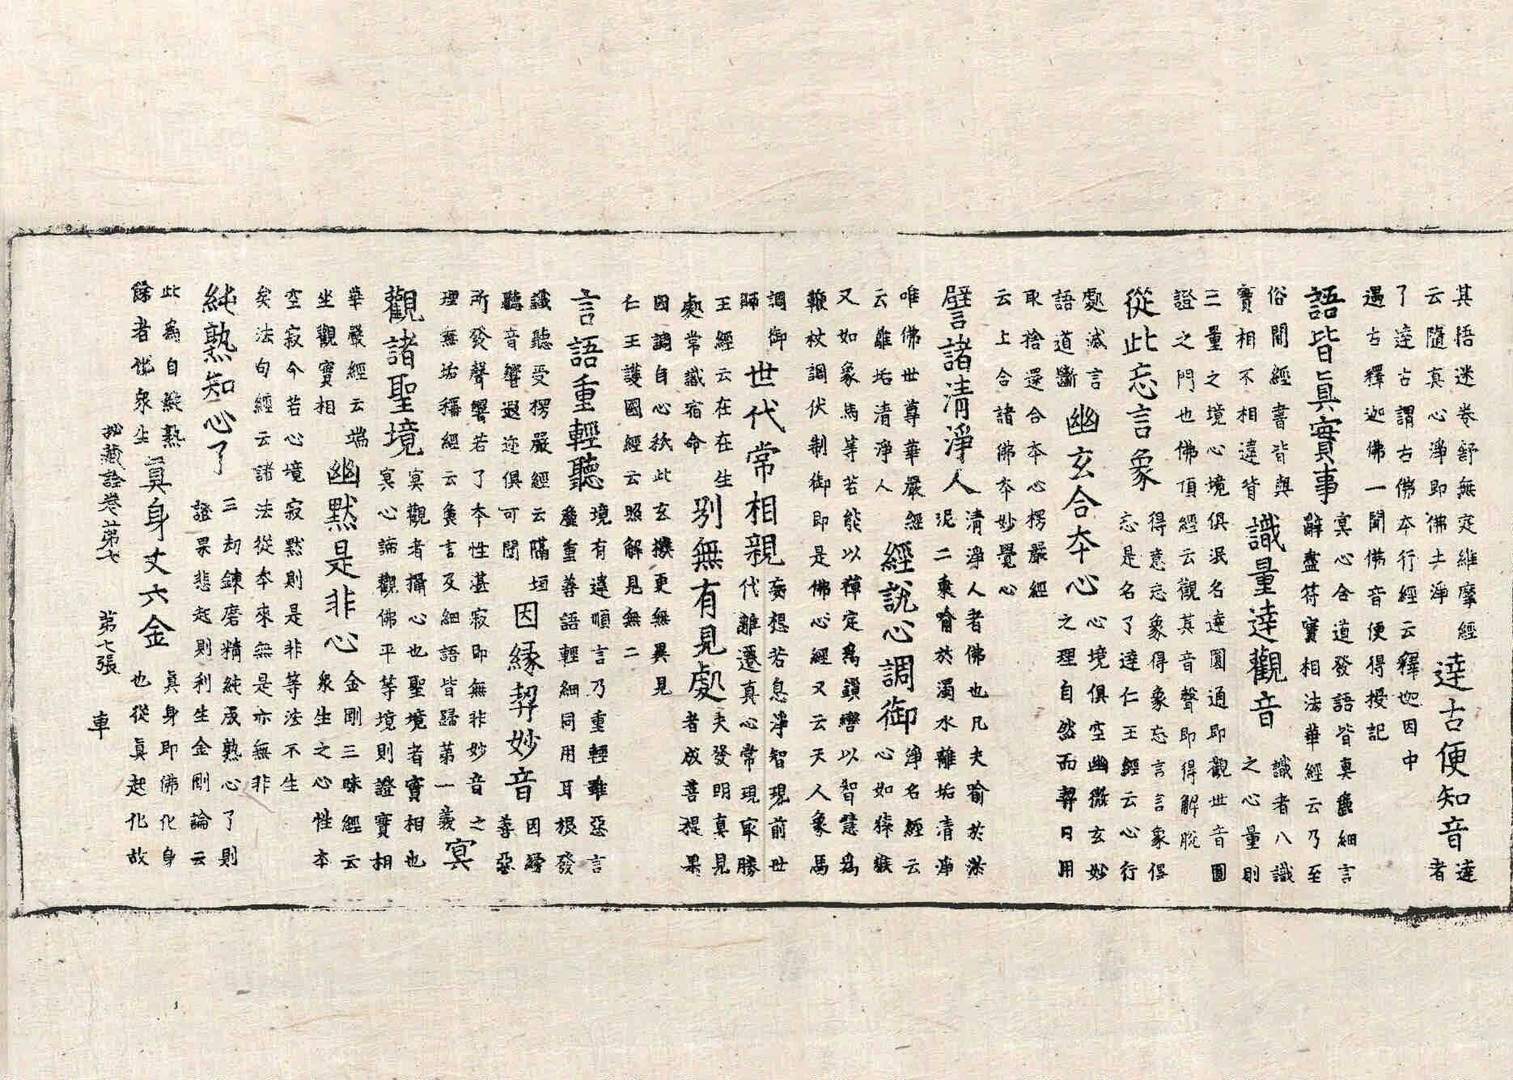 其悟迷卷舒無定維摩經
云隨真心淨即佛土淨
達古便知音
達
者
了達古謂古佛夲行經云釋迦因中
遇古釋迦佛一聞佛音便得授記
語皆真實事
冥心合道發語皆真麁細言
辭盡符實相法華經云乃至
俗間經書皆與
實相不相違背
識量達觀音
識者八識
之心量則
三量之境心境俱泯名達圓通即觀世音圓
證之門也佛頂經云觀其音聲即得解脫
從此忘言象
得意忘象得象忘言言象俱
忘是名了達仁王經云心行
處滅言
語道斷
幽玄合夲心
心境俱空幽微玄妙
之理自然而契日用
取捨還合夲心楞嚴經
云上合諸佛夲妙覺心
譬諸清淨人
清淨人者佛也凡夫喻於淤
泥二乘喻於濁水離垢清淨
唯佛世尊華嚴經
云離垢清淨人
經說心調御
淨名經云
心如猿猴
又如象馬等若能以禪定為鎖轡以智慧為
鞭杖調伏制御即是佛心經又云天人象馬
調御
師
世代常相親
妄想若息淨智現前世
代離遷真心常現家勝
王經云在在生
處常識宿命
別無有見處
夫發明真見
者成菩提果
因調自心於此玄機更無異見
仁王護國經云照解見無二
言語重輕聽
境有違順言乃重輕雖惡言
麁重善語輕細同用耳根發
識聽受楞嚴經云隔垣
聽音響遐邇俱可聞
因緣契妙音
因緣
善惡
所發聲響若了夲性湛寂即無非妙音之
理無垢稱經云麁言及細語皆歸第一義
冥
觀諸聖境
冥觀者攝心也聖境者實相也
冥心諦觀佛平等境則證實相
華嚴經云端
坐觀實相
幽默是非心
金剛三昧經云
眾生之心性夲
空寂今若心境寂默則是非等法不生
矣法句經云諸法從夲來無是亦無非
純熟知心了
三劫鍊磨精純成熟心了則
證果悲起則利生金剛論云
此為自純熟
餘者化眾生
真身丈六金
真身即佛化身
也從真起化故
秘藏詮卷第七 第七張 車